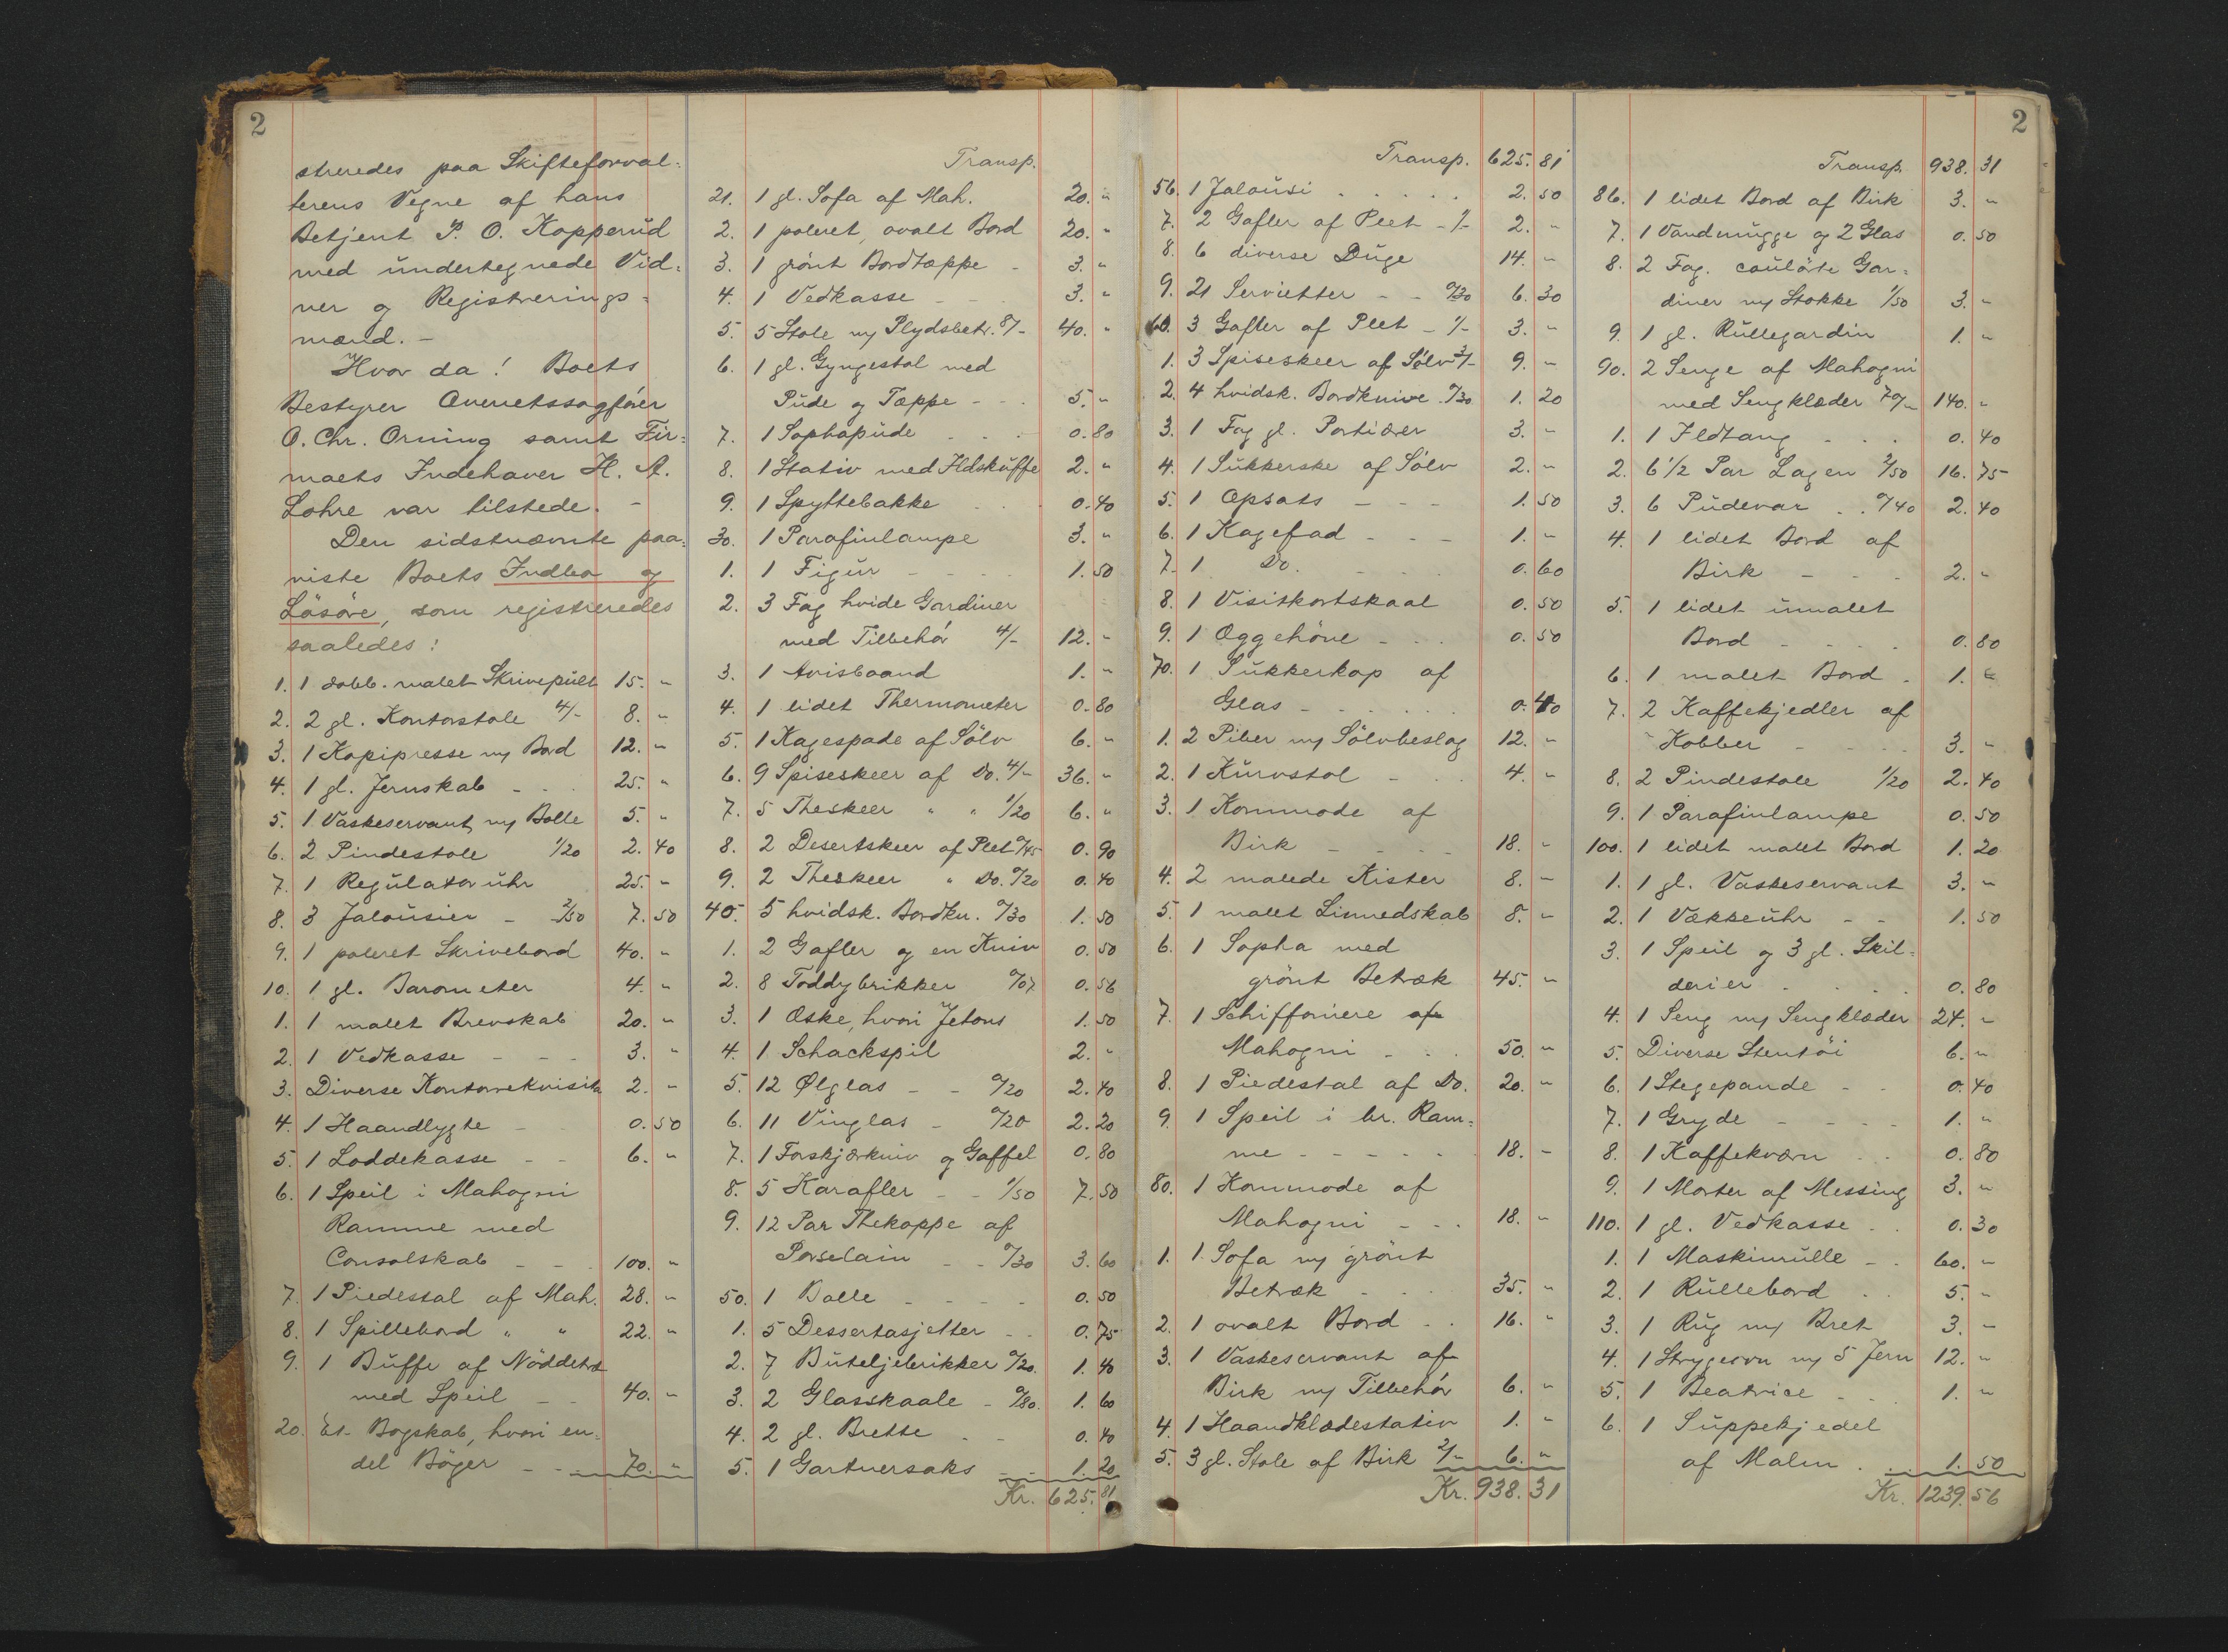 2
streredes paa Skifteforval-
terens Vegne af hans
Betjent P. O. Kopperud
med undertegnede Vid-
ner og Registrerings-
mænd. -
Hvor da! Boets
Bestyrer Overretssagfører
O. Chr. Orning samt Fir-
maets Indehaver H. A.
Lohre var tilstede. -
Den sidstnævnte paa-
viste Boets Indbo og
Løsøre, som registreredes
saaledes:
1. 1 dobb. malet Skrivepult 15. "
2. 2 gl. Kontorstole 4/- 8. "
3. 1 Kopipresse m/ Bord 12. "
4. 1 gl. Jernskab - - 25. "
5. 1 Vaskeservant m/ Bolle 5. "
6. 2 Pindestole 1/20 2. 40
7. 1 Regulatoruhr 25. "
8. 3 Jalousier - 2/50 7. 50
9. 1 poleret Skrivebord 40. "
10. 1 gl. Barometer 4. "
1. 1 malet Brevskab 20. "
2. 1 Vedkasse - - - 3. "
3. Diverse Kontorrekvisita 2. "
4. 1 Haandlygte - - 0. 50
5. 1 Loddekasse - - 6. "
6. 1 Speil i Mahogni
Ramme med
Consolskab - - 100. "
7. 1 Piedestal af Mah. 28. "
8. 1 Spillebord " " 22. "
9. 1 Buffe af Nøddetræ
med Speil - - 40. "
20. Et Bogskab, hvori en-
del Bøger - - 70. "
Transp.
21. 1 gl. Sofa af Mah. 20. "
2. 1 poleret, ovalt Bord 20. "
3. 1 grønt Bordtæppe - 3. "
4. 1 Vedkasse - - 3. "
5. 5 Stole m/ Plydsbetr. 8/- 40. "
6. 1 gl. Gyngestol med
Pude og Tæppe - - 5. "
7. 1 Sophapude - - 0. 80
8. 1 Stativ med Ildskuffe 2. "
9. 1 Spyttebakke 0. 40
30. 1 Parafinlampe 3. "
1. 1 Figur - - - - 1. 50
2. 3 Fag hvide Gardiner
med Tilbehør 4/- 12. "
3. 1 Avisbaand 1. "
4. 1 lidet Thermometer 0. 80
5. 1 Kagespade af Sølv 6. "
6. 9 Spiseskeer af Do. 4/- 36. "
7. 5 Theskeer " " 1/20 6. "
8. 2 Desertskeer af Plet 0/45 0. 90
9. 2 Theskeer " Do. 0/20 0. 40
40. 5 hvidsk. Bordkn. 0/30 1. 50
1. 2 Gafler og en Kniv 0. 50
2. 8 Toddybrikker 0/07 0. 56
3. 1 Æske, hvori Jetons 1. 50
4. 1 Schackspil 2. "
5. 12 Ølglas - - 0/20 2. 40
6. 11 Vinglas - 0/20 2. 20
7. 1 Forskjærkniv og Gaffel 0. 80
8. 5 Karafler - - 1/50 7. 50
9. 12 Par Thekoppe af
Porselain - - 0/30 3. 60
50. 1 Bolle - - - - 0. 50
1. 5 Dessertasjetter - - 0. 75
2. 7 Buteljebrikker 0/20. 1. 40
3. 2 Glasskaale - 0/80. 1. 60
4. 2 gl. Brette - - 0. 40
5. 1 Gartnersaks - - 1. 20
Kr. 625. 81
2
Transp. 625. 81
56. 1 Jalousi . . . . . 2. 50
7. 2 Gafler af Plet - 1/- 2. "
8. 6 diverse Duge 14. "
9. 21 Servietter - - 0/30 6. 30
60. 3 Gafler af Plet - 1/- 3. "
1. 3 Spiseskeer af Sølv 3/- 9. "
2. 4 hvidsk. Bordknive 0/30 1. 20
3. 1 Fag gl. Portiærer 3. "
4. 1 Sukkerske af Sølv 2. "
5. 1 Opsats - - - 1. 50
6. 1 Kagefad - - - 1. "
7. 1 Do. - - - 0. 60
8. 1 Visitkortskaal 0. 50
9. 1 Æggehøne - - - 0. 50
70. 1 Sukkerkop af
Glas - - - - - 0. 40
1. 2 Piber m/ Sølvbeslag 12. "
2. 1 Kurvstol - - - 4. "
3. 1 Kommode af
Birk - - - - 18. "
4. 2 malede Kister 8. "
5. 1 malet Linnedskab 8. "
6. 1 Sopha med
grønt Betræk 45. "
7. 1 Schiffoniere af
Mahogni - - - 50. "
8. 1 Piedestal af Do. 20. "
9. 1 Speil i br. Ram-
me - - - - - 18. "
80. 1 Kommode af
Mahogni - - - 18. "
1. 1 Sofa m/ grønt
Betræk - - - 35. "
2. 1 ovalt Bord - - 16. "
3. 1 Vaskeservant af
Birk m/ Tilbehør 6. "
4. 1 Haandklædestativ 1. "
5. 3 gl. Stole af Birk 2/- 6. "
Kr. 938. 31
Transp. 938. 31
86. 1 lidet Bord af Birk 3. "
7. 1 Vandmugge og 2 Glas 0. 50
8. 2 Fag. coulørte Gar-
diner m/ Stokke 1/50 3. "
9. 1 gl. Rullegardin 1. "
90. 2 Senge af Mahogni
med Sengklæder 70/- 140. "
1. 1 Ildtang - - - 0. 40
2. 6 1/2 Par Lagen 2/50 16. 75
3. 6 Pudevar . . 0/40 2. 40
4. 1 lidet Bord af
Birk - - - 2. "
5. 1 lidet umalet
Bord - - - - 0. 80
6. 1 malet Bord . 1. "
7. 2 Kaffekjedler af
Kobber - - - - 3. "
8. 2 Pindestole 1/20 2. 40
9. 1 Parafinlampe 0. 50
100. 1 lidet malet Bord 1. 20
1. 1 gl. Vaskeservant 3. "
2. 1 Vækkeuhr - - 1. 50
3. 1 Speil og 3 gl. Skil-
derier . . . . 0. 80
4. 1 Seng m/ Sengklæder 24. "
5. Diverse Stentøi 6. "
6. 1 Stegepande - - 0. 40
7. 1 Gryde - - - - 1. "
8. 1 Kaffekværn - - 0. 80
9. 1 Morter af Messing 3. "
110. 1 gl. Vedkasse . . 0. 30
1. 1 Maskinrulle - . 60. "
2. 1 Rullebord . . 5. "
3. 1 Rug m/ Bret 3. "
4. 1 Strygeovn m/ 5 Jern 12. "
5. 1 Beatrice - - 1. "
6. 1 Suppekjedel
af Malm . . . 1. 50
Kr. 1239. 56